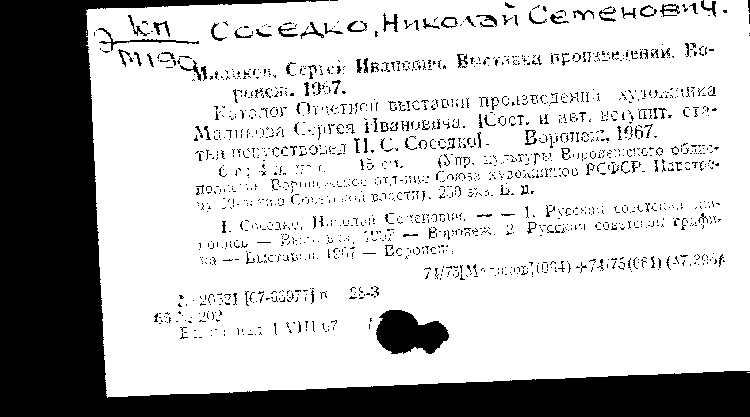 Э КП Соседко, Николай Семенович.
М190
Маликов, Сергей Иванович. Выставка произведений. Во-
ронеж. 1967.
Каталог Отчетной выставки произведений художника
Маликова Сергея Ивановича. [Сост. и авт. вступит. ста-
тьи искусствовед Н. С. Соседко]. Воронеж, 1967.
6 с; 4 л. 15 см. (Упр. культуры Воронежского облис-
полкома. Воронежское отд-ние Союза художников РСФСР. Навстре-
чу 50-летию Советской власти). 250 экз. Б. ц.
I. Соседко, Николай Семенович. — — 1. Русская советская жи-
вопись — Выставки, 1967 — Воронеж. 2. Русская советская графи-
ка — Выставки, 1967 — Воронеж.
74/75[Маликов](064) + 74/75(064) (47.296)
№ 20521 [67-  ] п 28-3
66 № 202
1 VIII 67